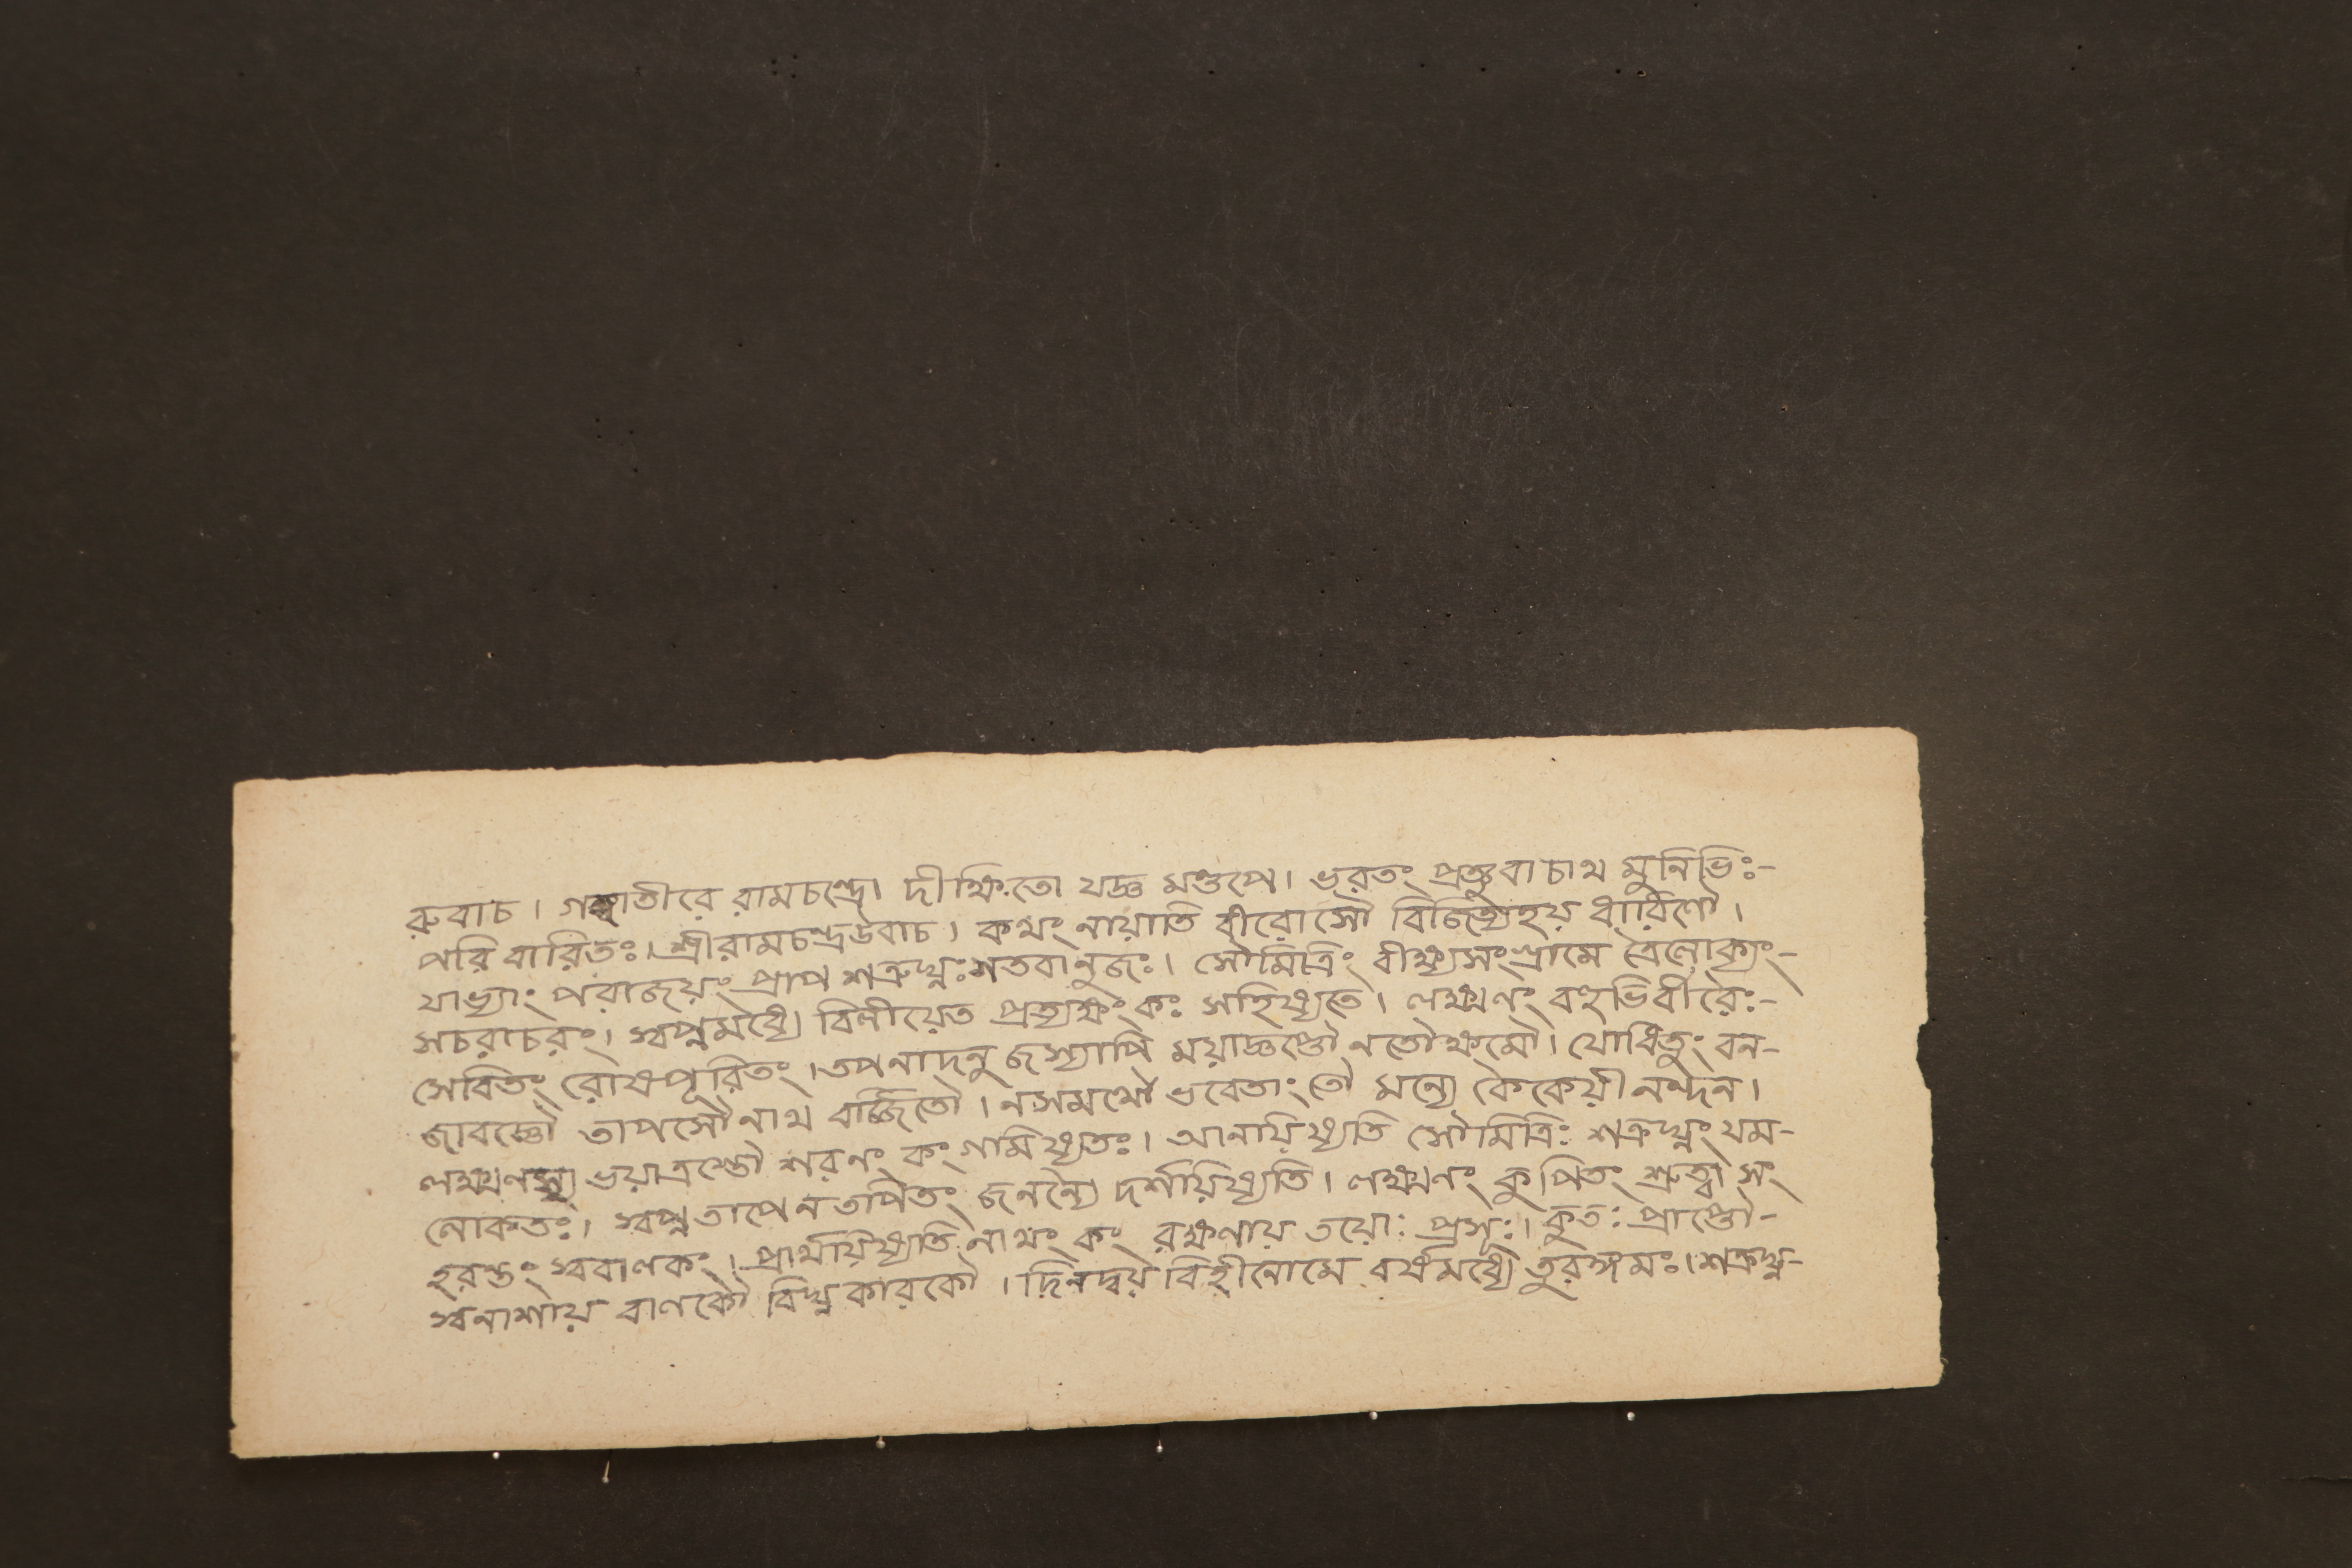 রুবাচ। গঙ্গাতীরে রামচন্দ্রো দীক্ষিতো যজ্ঞ মণ্ডপে। ভরতং প্রত্যুবাচাথ মুনিভিঃ-
পরি বারিতঃ। শ্রীরামচন্দ্রউবাচ। কথং নায়াতি বীরোসৌ বিজিত্যহয় ধারিণৌ।
যাভ্যাং পরাজয়ং প্রাপ শত্রুঘ্নঃশতবানুজঃ। সৌমিত্রিং বীক্ষ্যসংগ্রামে ত্রৈলোক্যং-
সচরাচরং। স্বপ্নমধ্যে বিলীয়েত প্রত্যক্ষং কঃ সহিষ্যতে। লক্ষ্মণং বহুভির্বীরৈঃ-
সেবিতং রোষপূরিতং। তপনাদনু জস্যাপি ময়াজ্ঞপ্তৌ নতৌক্ষমৌ। যোধিতুং বন-
জাবজ্ঞৌ তাপসৌনাথ বর্জ্জিতৌ। নসমর্থৌ ভবেতাং তৌ মন্যে কৈকেয়ী নন্দন।
লক্ষ্মণস্য ভয়াত্রস্তৌ শরণং কং গমিষ্যতঃ। আনায়িষ্যতি সৌমিত্রিঃ শত্রুঘ্নং যম-
লোকতঃ। স্বপ্নতাপেন তাপিতং জনন্যৈ দর্শয়িষ্যতি। লক্ষ্মণং কুপিতং শ্রুত্বা সং
হরন্তং স্ববালকং। প্রার্থয়িষ্যতি নাথং কং রক্ষণায় তয়োঃ প্রসূঃ। কুতঃ প্রাপ্তৌ-
স্বনাশায় বালকৌ বিঘ্নকারকৌ। দিনদ্বয় বিহীনোমে বর্ষমধ্যে তুরঙ্গমঃ। শত্রুঘ্ন-